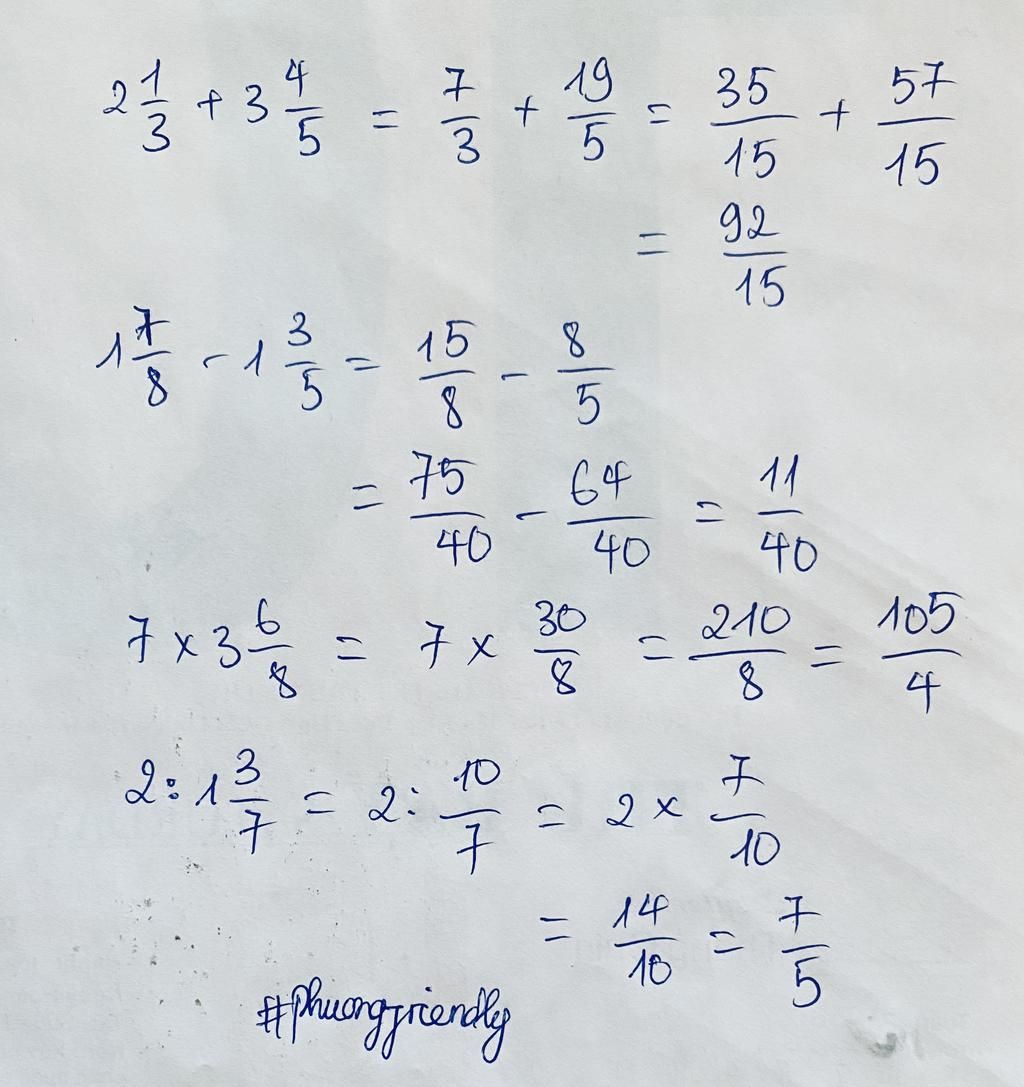 2 1/3 + 3 4/5 = 7/3 + 19/5 = 35/15 + 57/15
= 92/15
1 7/8 - 1 3/5 = 15/8 - 8/5
= 75/40 - 64/40 = 11/40
7 x 3 6/8 = 7 x 30/8 = 210/8 = 105/4
2 : 1 3/7 = 2 : 10/7 = 2 x 7/10
= 14/10 = 7/5
#phuongfriendly